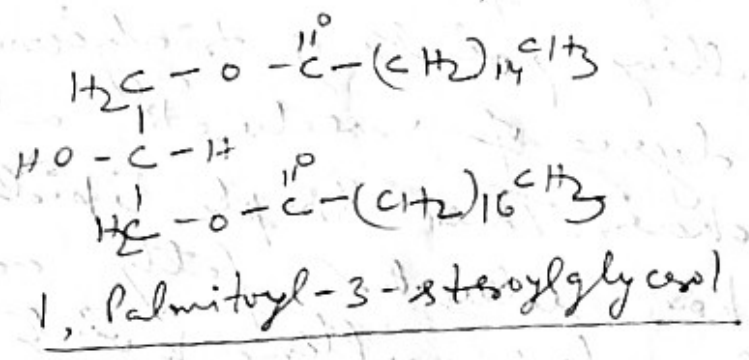 H2C - O - C - (CH2)14 CH3
O
HO - C - H
H2C - O - C - (CH2)16 CH3
O
1, Palmitoyl-3-steroylglycerol